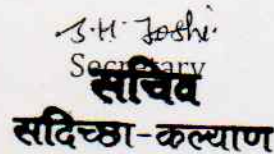 S.H. Joshi.
Secretary
सचिव
सदिच्छा-कल्याण